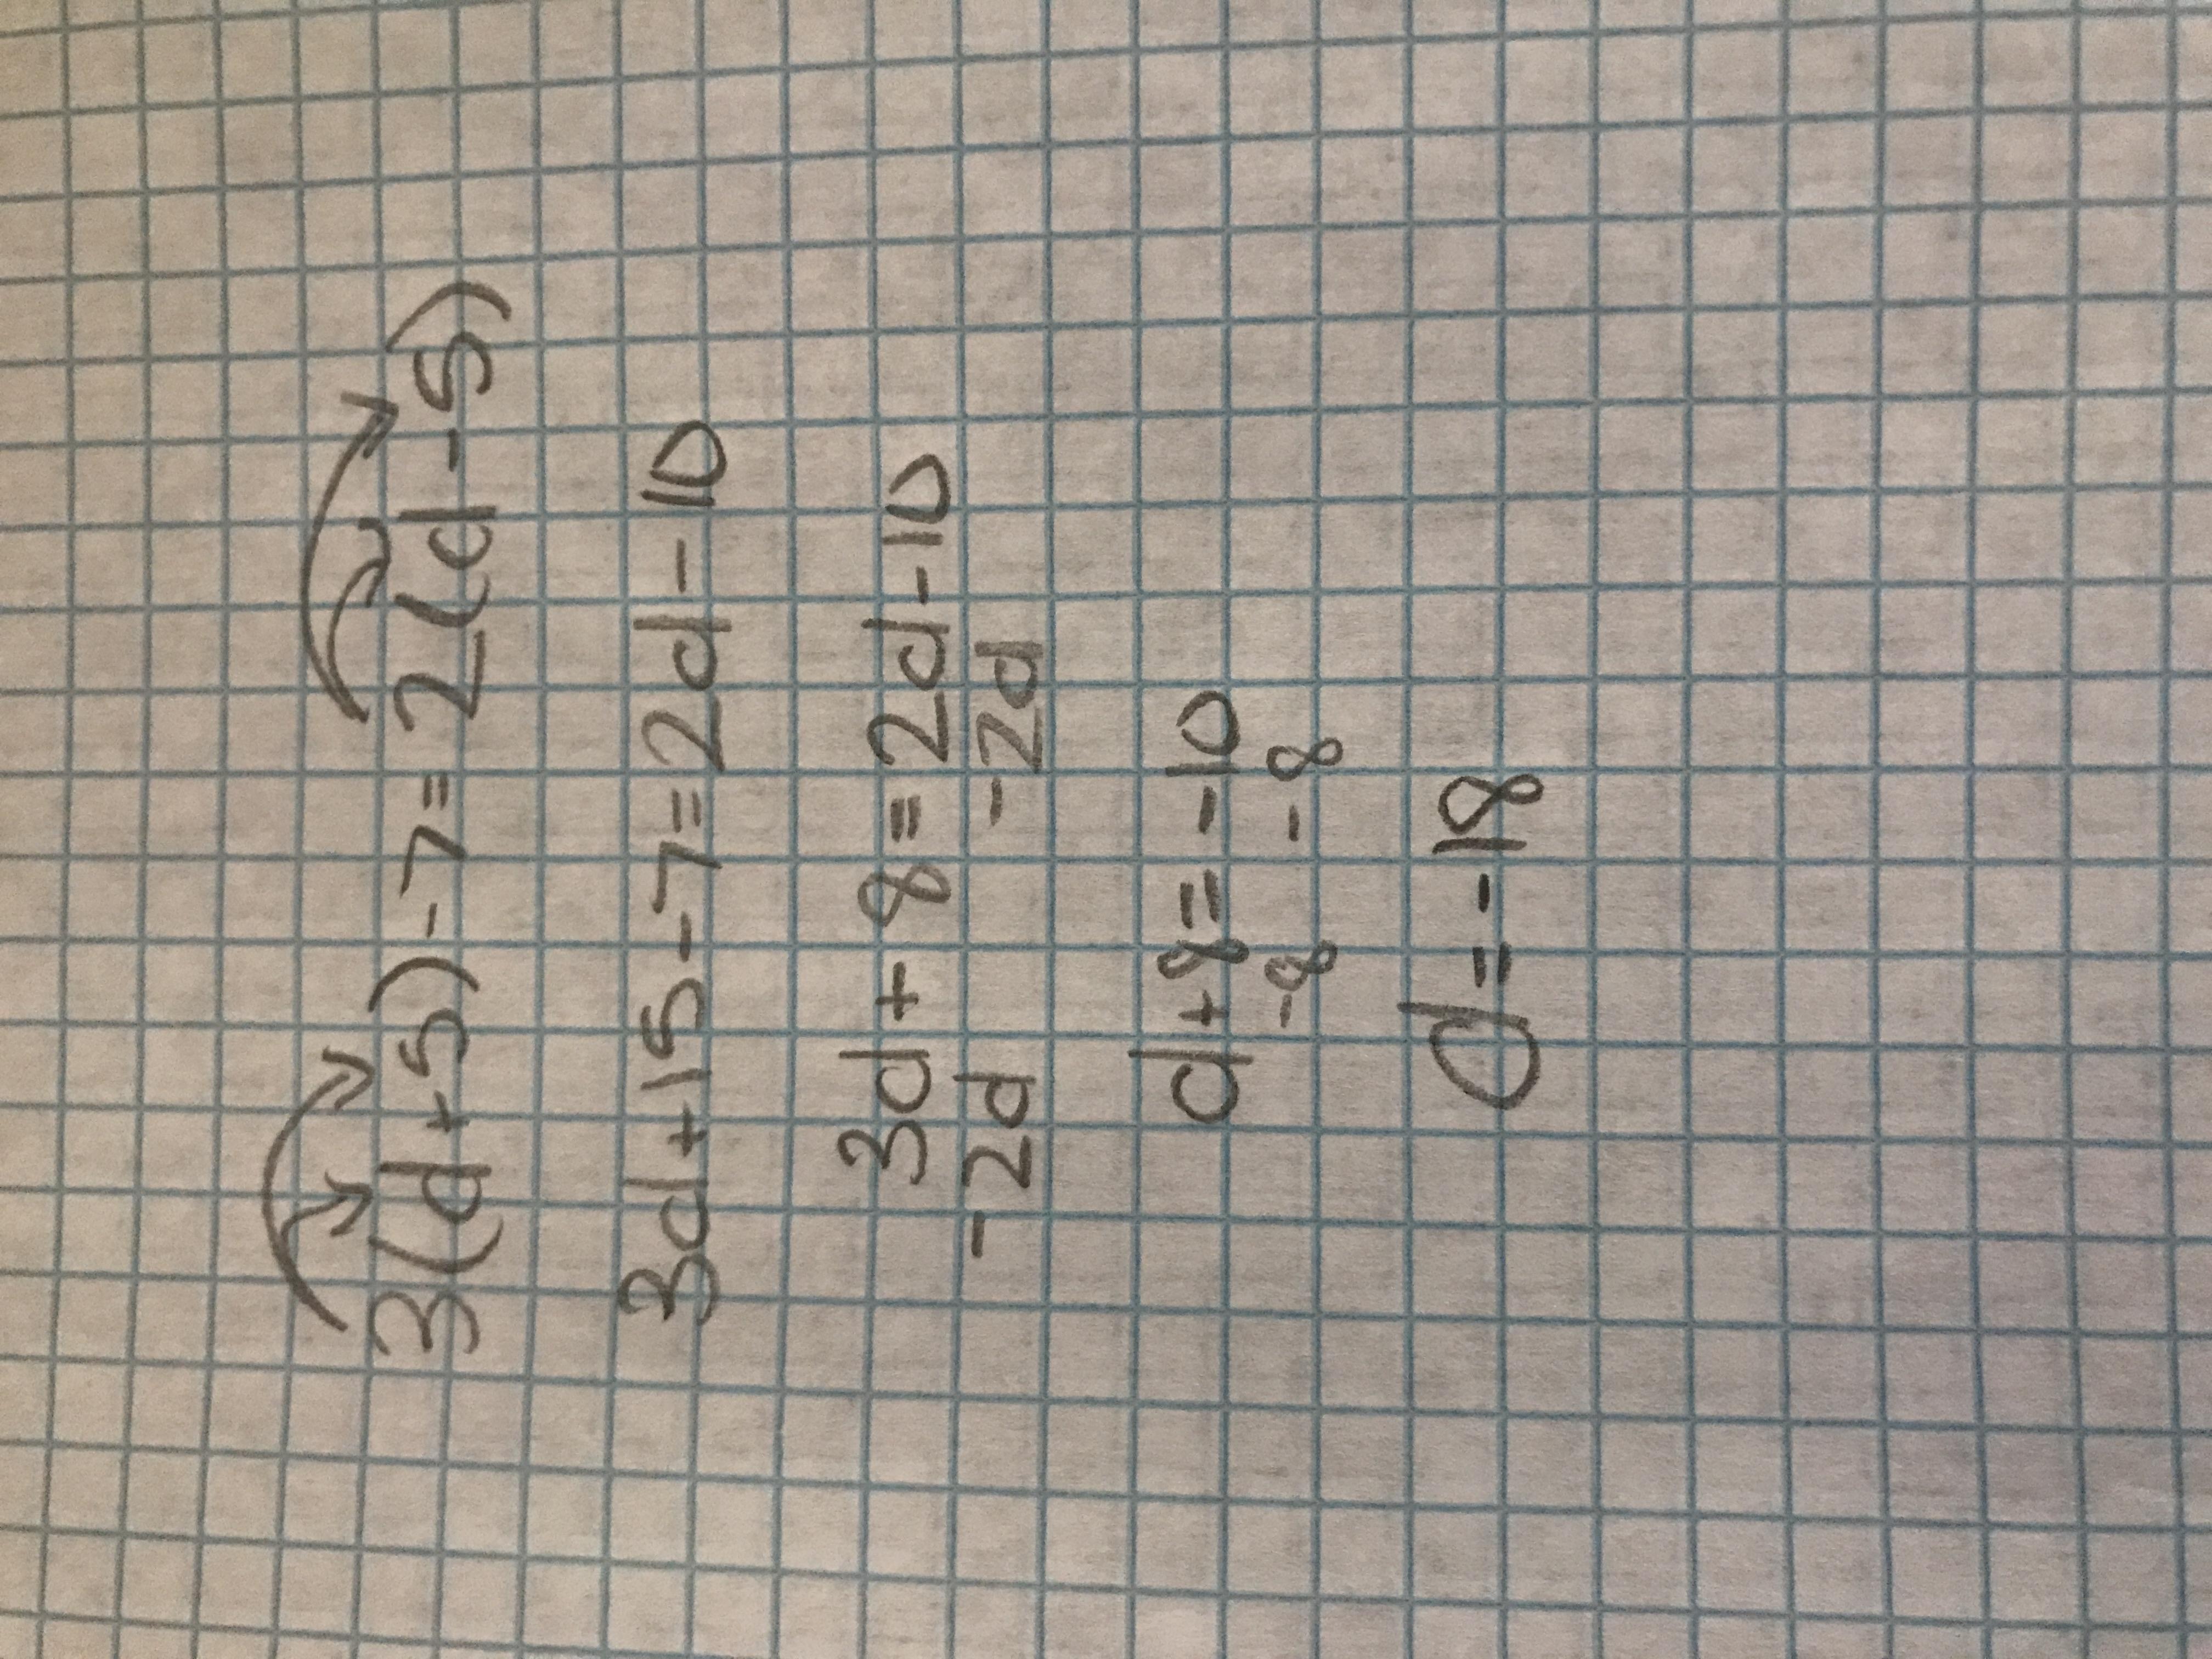 3(d+5)-7=2(d-5)
3d+15-7=2d-10
3d+8=2d-10
-2d -2d
d+8=-10
-8 -8
d=-18